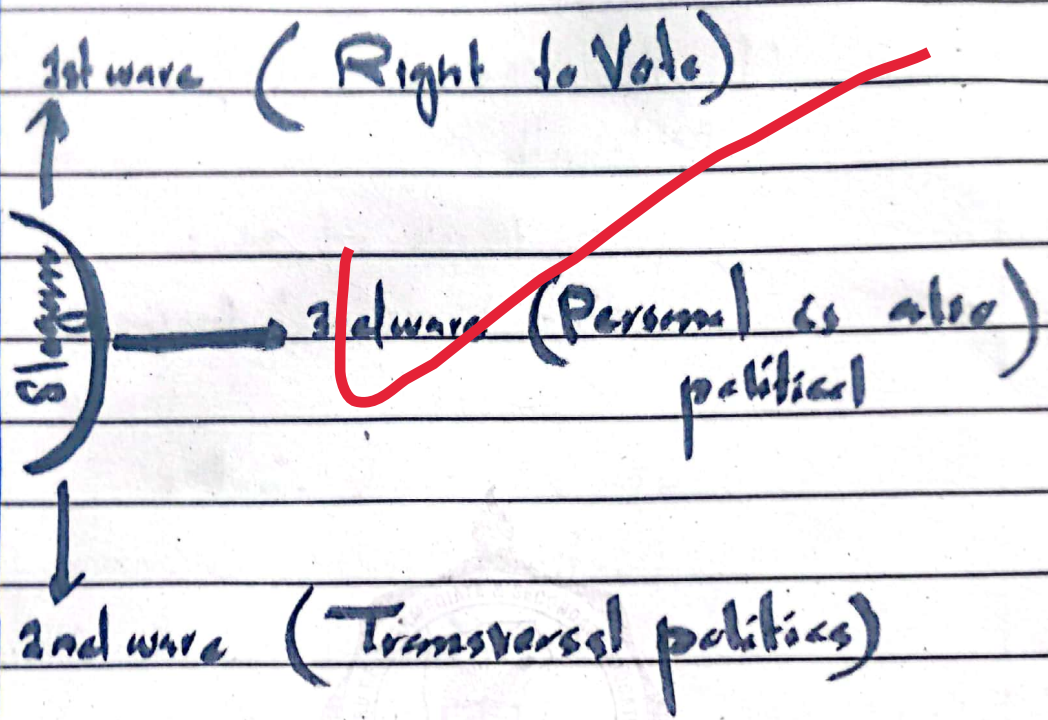 1st wave ( Right to Vote)
Slogan
3rd wave (Personal is also)
political
2nd wave (Transversal politics)